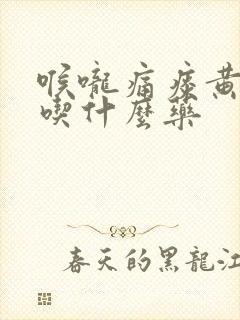 喉嚨痛痰黃
喫什麼藥
春天的黑龍江